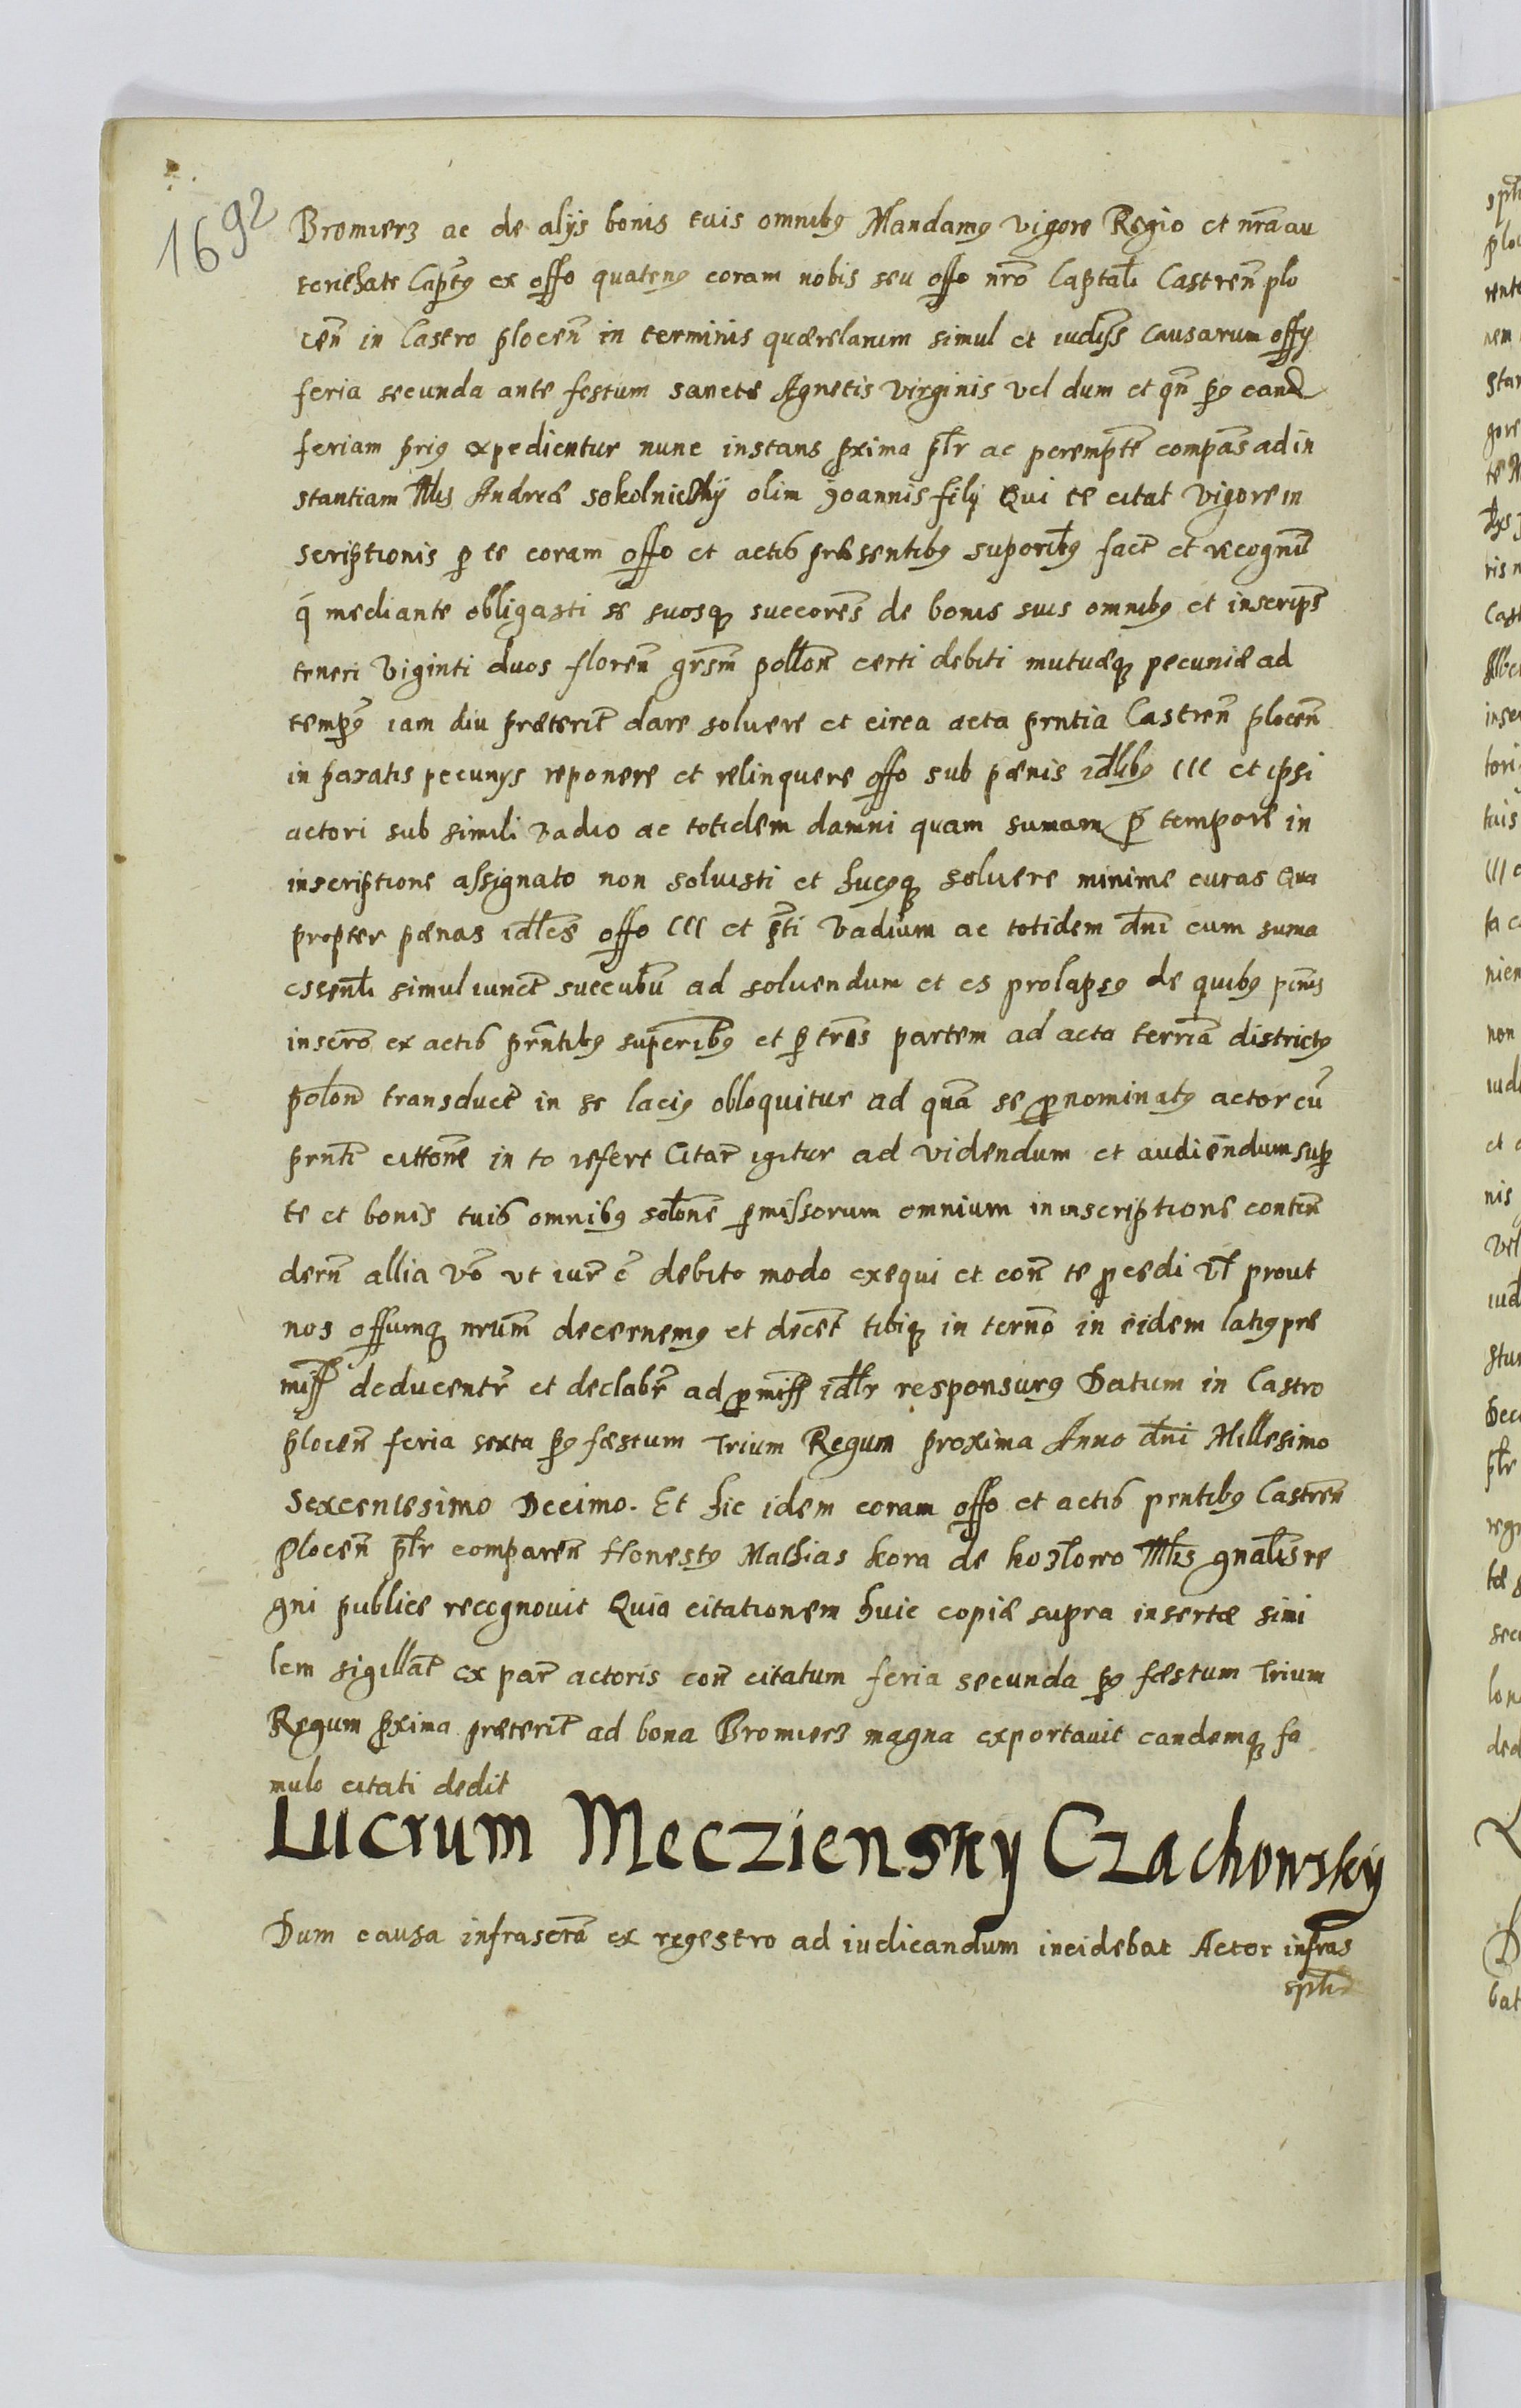 1692
Bromierz ac de alijs bonis tuis omnibꝯ Mandamꝯ vigore Regio et nrã au
toriehate Captꝯ ex offo quatenꝯ coram nobis seu offo nrõ Captali Castreñ plo
ceñ in Castro ploceñ in terminis quærelarum simul et iudijs causarum offij
feria secunda ante festum sanctæ Agnetis virginis vel dum et qñ pꝯ eand
feriam priꝯ expedientur nunc instans pxima pltr ac perempte compas ad in
stantiam Mlis Andreæ sokolnickhij olim Joannis filij Qui te citat vigore in
scriptionis p te coram offo et actis præsentibꝯ superibꝯ fact et recognit
q mediante obligasti se suosqꝫ succores de bonis suis omnibꝯ et inscrips
teneri viginti duos floreñ grsm polloñ certi debiti mutuæqꝫ pecuniæ ad
tempꝯ iam diu præterit dare soluere et circa acta prntia Castreñ ploceñ
in paratis pecunijs reponere et relinquere offo sub pænis idlibꝯ III et ipsi
actori sub simili vadio ac totidem damni quam sumam p tempore in
inscriptione assignato non soluisti et hucꝯqꝫ soluere minime curas Qua
propter pænas idles offo III et pti vadium ac totidem dni cum suma
essenli simul iunct succubu ad soluendum et es prolapsꝯ de quibꝯ pænis
inscro ex actis prntibꝯ superibꝯ et p trãs partem ad acta terria districtꝯ
poloñ transduct in se laciꝯ obloquitur ad quã se pnominatꝯ actor cũ
prnti cittone in to refert Citar igitur ad videndum et audiendum sup
te et bonis tuis omnibꝯ solone pmissorum omnium in inscriptione contin
dern allia vo ut iur e debito modo exequi et con te pcedi vl prout
nos offumqꝫ nrum decernemꝯ et decet tibiqꝫ in terno in eidem latiꝯ præ
miss deducentr et declabr ad pmiss idlr responsurꝯ Datum in Castro
ploceñ feria sexta pꝯ fæstum Trium Regum proxima Anno dni Millesimo
Sexcentesimo Decimo. Et hic idem coram offo et actis prntibꝯ Castreñ
ploceñ pltr compareñ Honestꝯ Mathias kora de kozlowo Mlis gnalis re
gni publice recognovit Quia citationem huic copiæ supra insertæ simi
lem sigillat ex par actoris con citatum feria secunda pꝯ fæstum Trium
Regum pxima præterit ad bona Bromierz magna exportavit eandemqꝫ fa
mulo citati dedit
Lucrum Mecziensky Czachowsky
Dum causa infrascra ex regestro ad iudicandum incidebat Actor infras
sptu